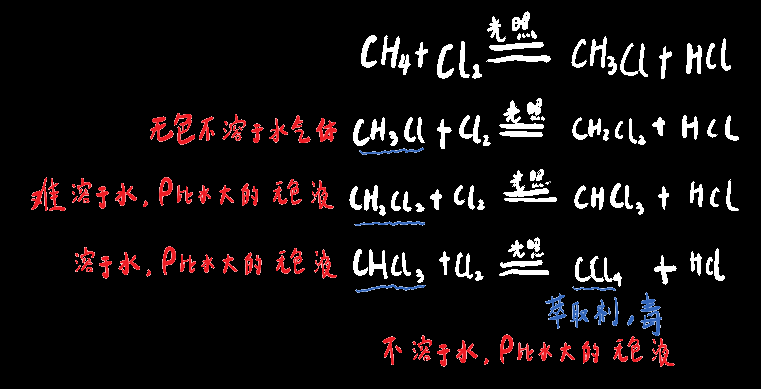 CH₄ + Cl₂ 光照 CH₃Cl + HCl
无色不溶于水气体 CH₃Cl + Cl₂ 光照 CH₂Cl₂ + HCl
难溶于水，ρ比水大的无色液 CH₂Cl₂ + Cl₂ 光照 CHCl₃ + HCl
溶于水，ρ比水大的无色液 CHCl₃ + Cl₂ 光照 CCl₄ + HCl
萃取剂，毒
不溶于水，ρ比水大的无色液